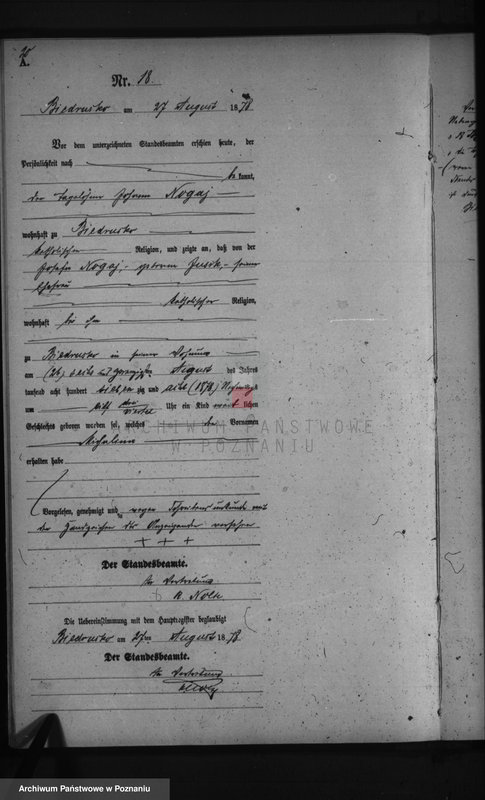 A.
Nr. 18.
Biedrusko am 27 August 1878
Vor dem unterzeichneten Standesbeamten erschien heute, der
Persönlichkeit nach
bekannt,
der Tagelöhner Johann Nogaj
wohnhaft zu Biedrusko
katholischer Religion, und zeigte an, daß von der
Josefa Nogaj, geborenen seiner
Ehefrau
katholischer Religion,
wohnhaft bei ihm
zu Biedrusko in seiner Wohnung
am (26) sechs und zwanzigsten August des Jahres
tausend acht hundert siebenzig und acht (1878) Nachmittags
um Uhr ein Kind weiblichen
Geschlechts geboren worden sei, welches Vornamen
Michalina
erhalten habe
Vorgelesen, genehmigt und wegen Schreibensunkunde mit
den Handzeichen des Anzeigenden versehen
+ + +
Der Standesbeamte.
In Vertretung
Die Uebereinstimmung mit dem Hauptregister beglaubigt
Biedrusko am 27ten August 1878.
Der Standesbeamte.
In Vertretung
ARCHIWUM PAŃSTWOWE
W POZNANIU
Archiwum Państwowe w Poznaniu